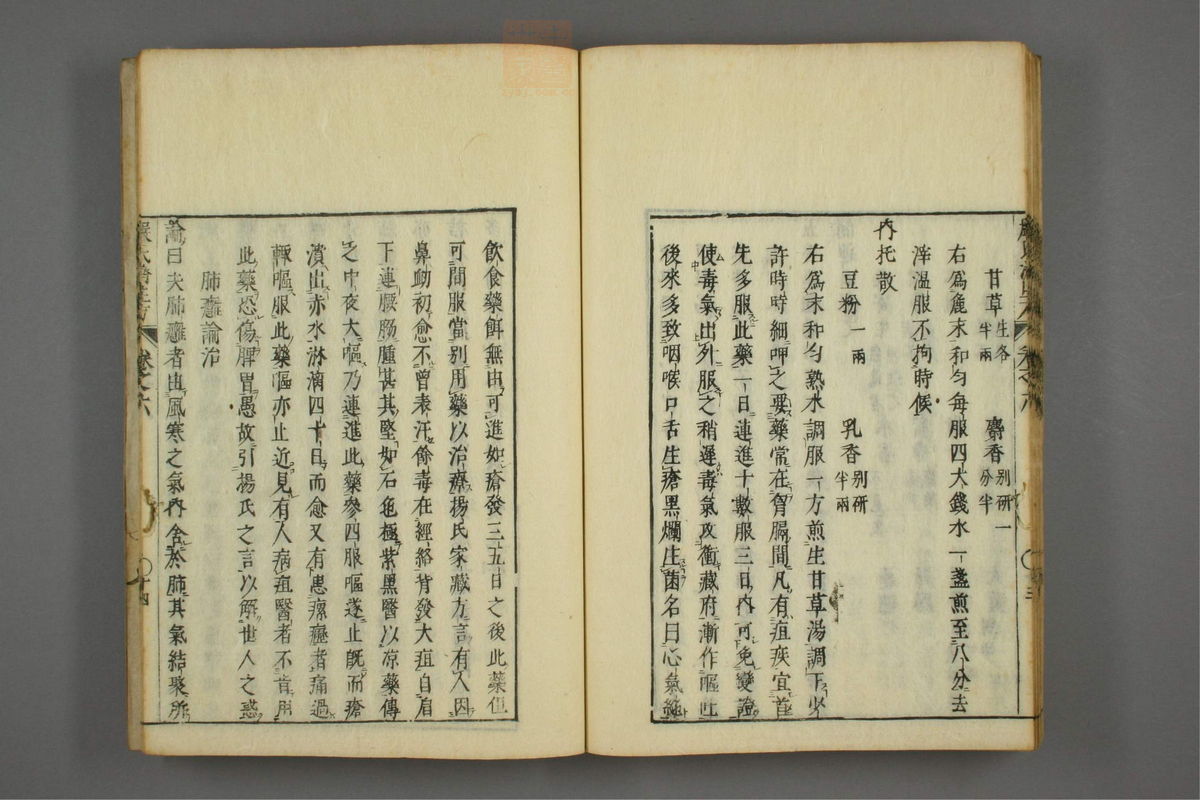 甘草生各半兩　麝香別研一分半
右爲麄末和勻每服四大錢水一盞煎至八分去
滓溫服不拘時候
內托散
豆粉一兩　乳香別研半兩
右爲末和勻熟水調服一方煎生甘草湯調下少
許時時細呷之要藥常在胷膈間凡有疽疾宜首
先多服此藥一日連進十數服三日內可免變證
使毒氣出外服之稍遲毒氣攻衝藏府漸作嘔吐
後來多致咽喉口舌生瘡黑爛生菌名曰心氣絕
飲食藥餌無由可進如瘡發三五日之後此藥但
可間服當別用藥以治療楊氏家藏方言有人因
鼻衂初愈不曾表汗餘毒在經絡背發大疽自肩
下連腰腸腫甚其堅如石色極紫黑醫以凉藥傳
之中夜大嘔乃連進此藥參四服嘔遂止旣而瘡
潰出赤水淋漓四十日而愈又有患瘰癧者痛過
輒嘔服此藥嘔亦止近見有人病疽醫者不肯用
此藥恐傷脾胃愚故引楊氏之言以解世人之惑
肺癰論治
論曰夫肺癰者由風寒之氣內舍於肺其氣結聚所
嚴氏濟生方　卷之六　十四